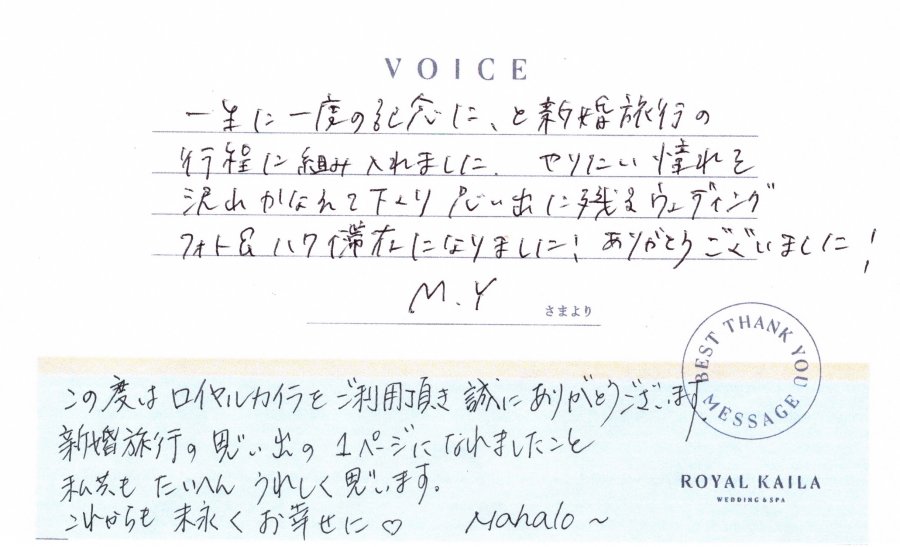 VOICE
一生に一度の記念に、と新婚旅行の
行程に組み入れました。やりたい憧れを
沢山かなえて下さり思い出に残るウェディング
フォト&ハワイ滞在になりました!ありがとうございました!
M.Y
さまより
BEST THANK YOU MESSAGE
この度はロイヤルカイラをご利用頂き誠にありがとうございます。
新婚旅行の思い出の1ページになれましたこと
私共も たいへん うれしく思います。
これからも 末永く お幸せに♡ Mahalo~
ROYAL KAILA
WEDDING & SPA